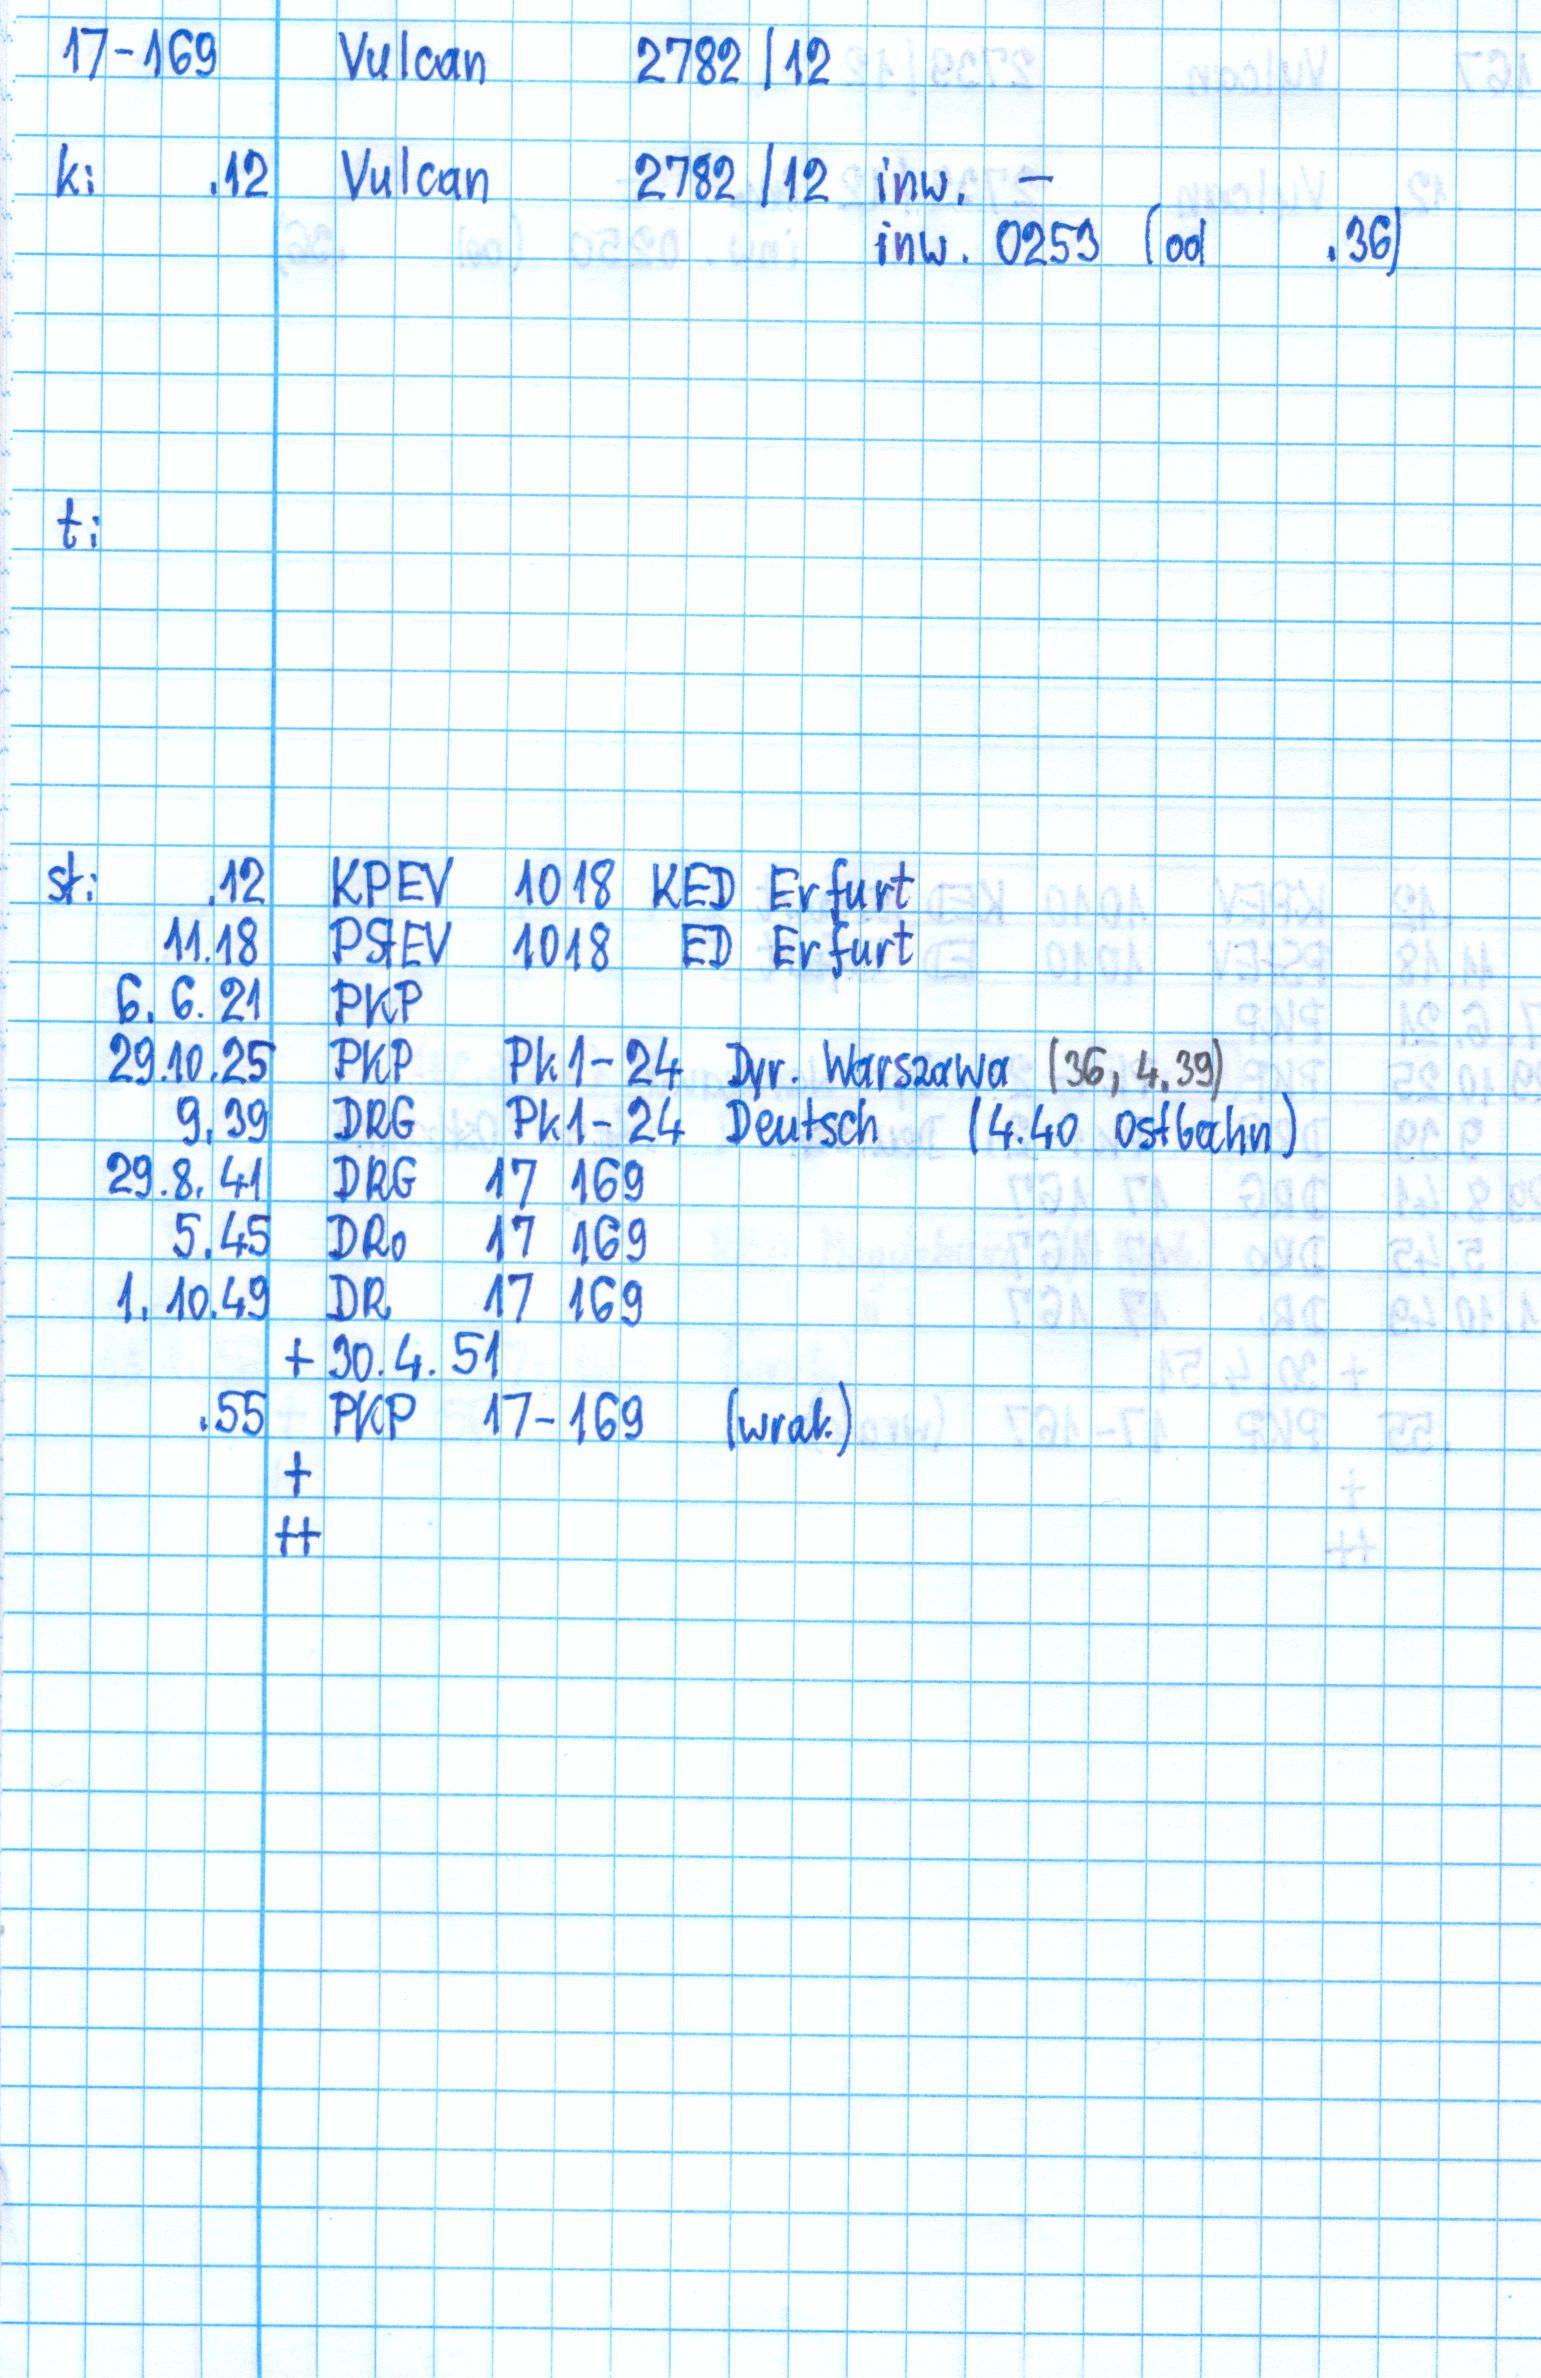 17-169 Vulcan 2782/12
k: .12 Vulcan 2782/12 inw. –
inw. 0253 (od .36)
t:
st: .12 KPEV 1018 KED Erfurt
11.18 PStEV 1018 ED Erfurt
6.6.21 PKP
29.10.25 PKP Pk1-24 Dyr. Warszawa (36, 4.39)
9.39 DRG Pk1-24 Deutsch (4.40 Ostbahn)
29.8.41 DRG 17 169
5.45 DRo 17 169
1.10.49 DR 17 169
+ 30.4.51
.55 PKP 17-169 (wrak)
+
++